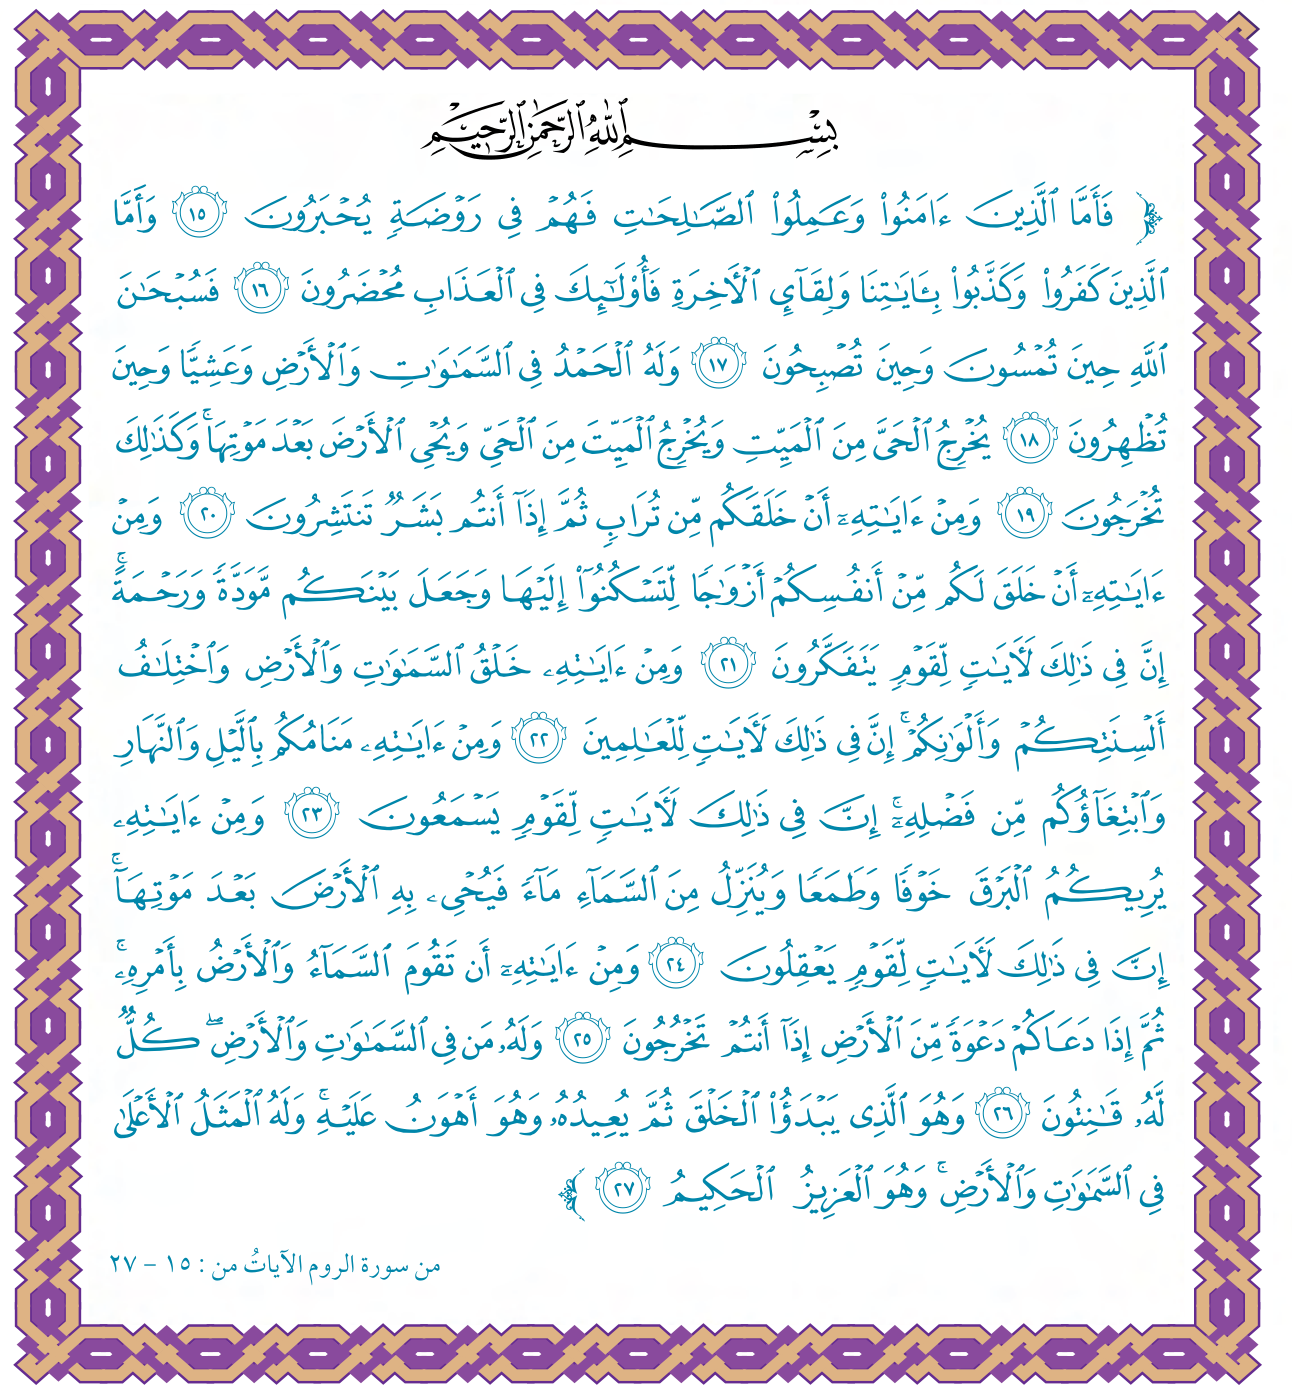 بِسْمِ ٱللَّهِ ٱلرَّحْمَٰنِ ٱلرَّحِيمِ
﴿ فَأَمَّا ٱلَّذِينَ ءَامَنُوا۟ وَعَمِلُوا۟ ٱلصَّٰلِحَٰتِ فَهُمْ فِى رَوْضَةٍ يُحْبَرُونَ ١٥ وَأَمَّا
ٱلَّذِينَ كَفَرُوا۟ وَكَذَّبُوا۟ بِـَٔايَٰتِنَا وَلِقَآئِ ٱلْأَخِرَةِ فَأُو۟لَٰٓئِكَ فِى ٱلْعَذَابِ مُحْضَرُونَ ١٦ فَسُبْحَٰنَ
ٱللَّهِ حِينَ تُمْسُونَ وَحِينَ تُصْبِحُونَ ١٧ وَلَهُ ٱلْحَمْدُ فِى ٱلسَّمَٰوَٰتِ وَٱلْأَرْضِ وَعَشِيًّا وَحِينَ
تُظْهِرُونَ ١٨ يُخْرِجُ ٱلْحَىَّ مِنَ ٱلْمَيِّتِ وَيُخْرِجُ ٱلْمَيِّتَ مِنَ ٱلْحَىِّ وَيُحْىِ ٱلْأَرْضَ بَعْدَ مَوْتِهَا ۚ وَكَذَٰلِكَ
تُخْرَجُونَ ١٩ وَمِنْ ءَايَٰتِهِۦٓ أَنْ خَلَقَكُم مِّن تُرَابٍ ثُمَّ إِذَآ أَنتُم بَشَرٌ تَنتَشِرُونَ ٢٠ وَمِنْ
ءَايَٰتِهِۦٓ أَنْ خَلَقَ لَكُم مِّنْ أَنفُسِكُمْ أَزْوَٰجًا لِّتَسْكُنُوٓا۟ إِلَيْهَا وَجَعَلَ بَيْنَكُم مَّوَدَّةً وَرَحْمَةً ۚ
إِنَّ فِى ذَٰلِكَ لَأَيَٰتٍ لِّقَوْمٍ يَتَفَكَّرُونَ ٢١ وَمِنْ ءَايَٰتِهِۦ خَلْقُ ٱلسَّمَٰوَٰتِ وَٱلْأَرْضِ وَٱخْتِلَٰفُ
أَلْسِنَتِكُمْ وَأَلْوَٰنِكُمْ ۚ إِنَّ فِى ذَٰلِكَ لَأَيَٰتٍ لِّلْعَٰلِمِينَ ٢٢ وَمِنْ ءَايَٰتِهِۦ مَنَامُكُم بِٱلَّيْلِ وَٱلنَّهَارِ
وَٱبْتِغَآؤُكُم مِّن فَضْلِهِۦٓ ۚ إِنَّ فِى ذَٰلِكَ لَأَيَٰتٍ لِّقَوْمٍ يَسْمَعُونَ ٢٣ وَمِنْ ءَايَٰتِهِۦ
يُرِيكُمُ ٱلْبَرْقَ خَوْفًا وَطَمَعًا وَيُنَزِّلُ مِنَ ٱلسَّمَآءِ مَآءً فَيُحْىِۦ بِهِ ٱلْأَرْضَ بَعْدَ مَوْتِهَآ ۚ
إِنَّ فِى ذَٰلِكَ لَأَيَٰتٍ لِّقَوْمٍ يَعْقِلُونَ ٢٤ وَمِنْ ءَايَٰتِهِۦٓ أَن تَقُومَ ٱلسَّمَآءُ وَٱلْأَرْضُ بِأَمْرِهِۦ ۚ
ثُمَّ إِذَا دَعَاكُمْ دَعْوَةً مِّنَ ٱلْأَرْضِ إِذَآ أَنتُمْ تَخْرُجُونَ ٢٥ وَلَهُۥ مَن فِى ٱلسَّمَٰوَٰتِ وَٱلْأَرْضِ ۖ كُلٌّ
لَّهُۥ قَٰنِتُونَ ٢٦ وَهُوَ ٱلَّذِى يَبْدَؤُا۟ ٱلْخَلْقَ ثُمَّ يُعِيدُهُۥ وَهُوَ أَهْوَنُ عَلَيْهِ ۚ وَلَهُ ٱلْمَثَلُ ٱلْأَعْلَىٰ
فِى ٱلسَّمَٰوَٰتِ وَٱلْأَرْضِ ۚ وَهُوَ ٱلْعَزِيزُ ٱلْحَكِيمُ ٢٧ ﴾
من سورة الروم الآياتُ من : ١٥ – ٢٧